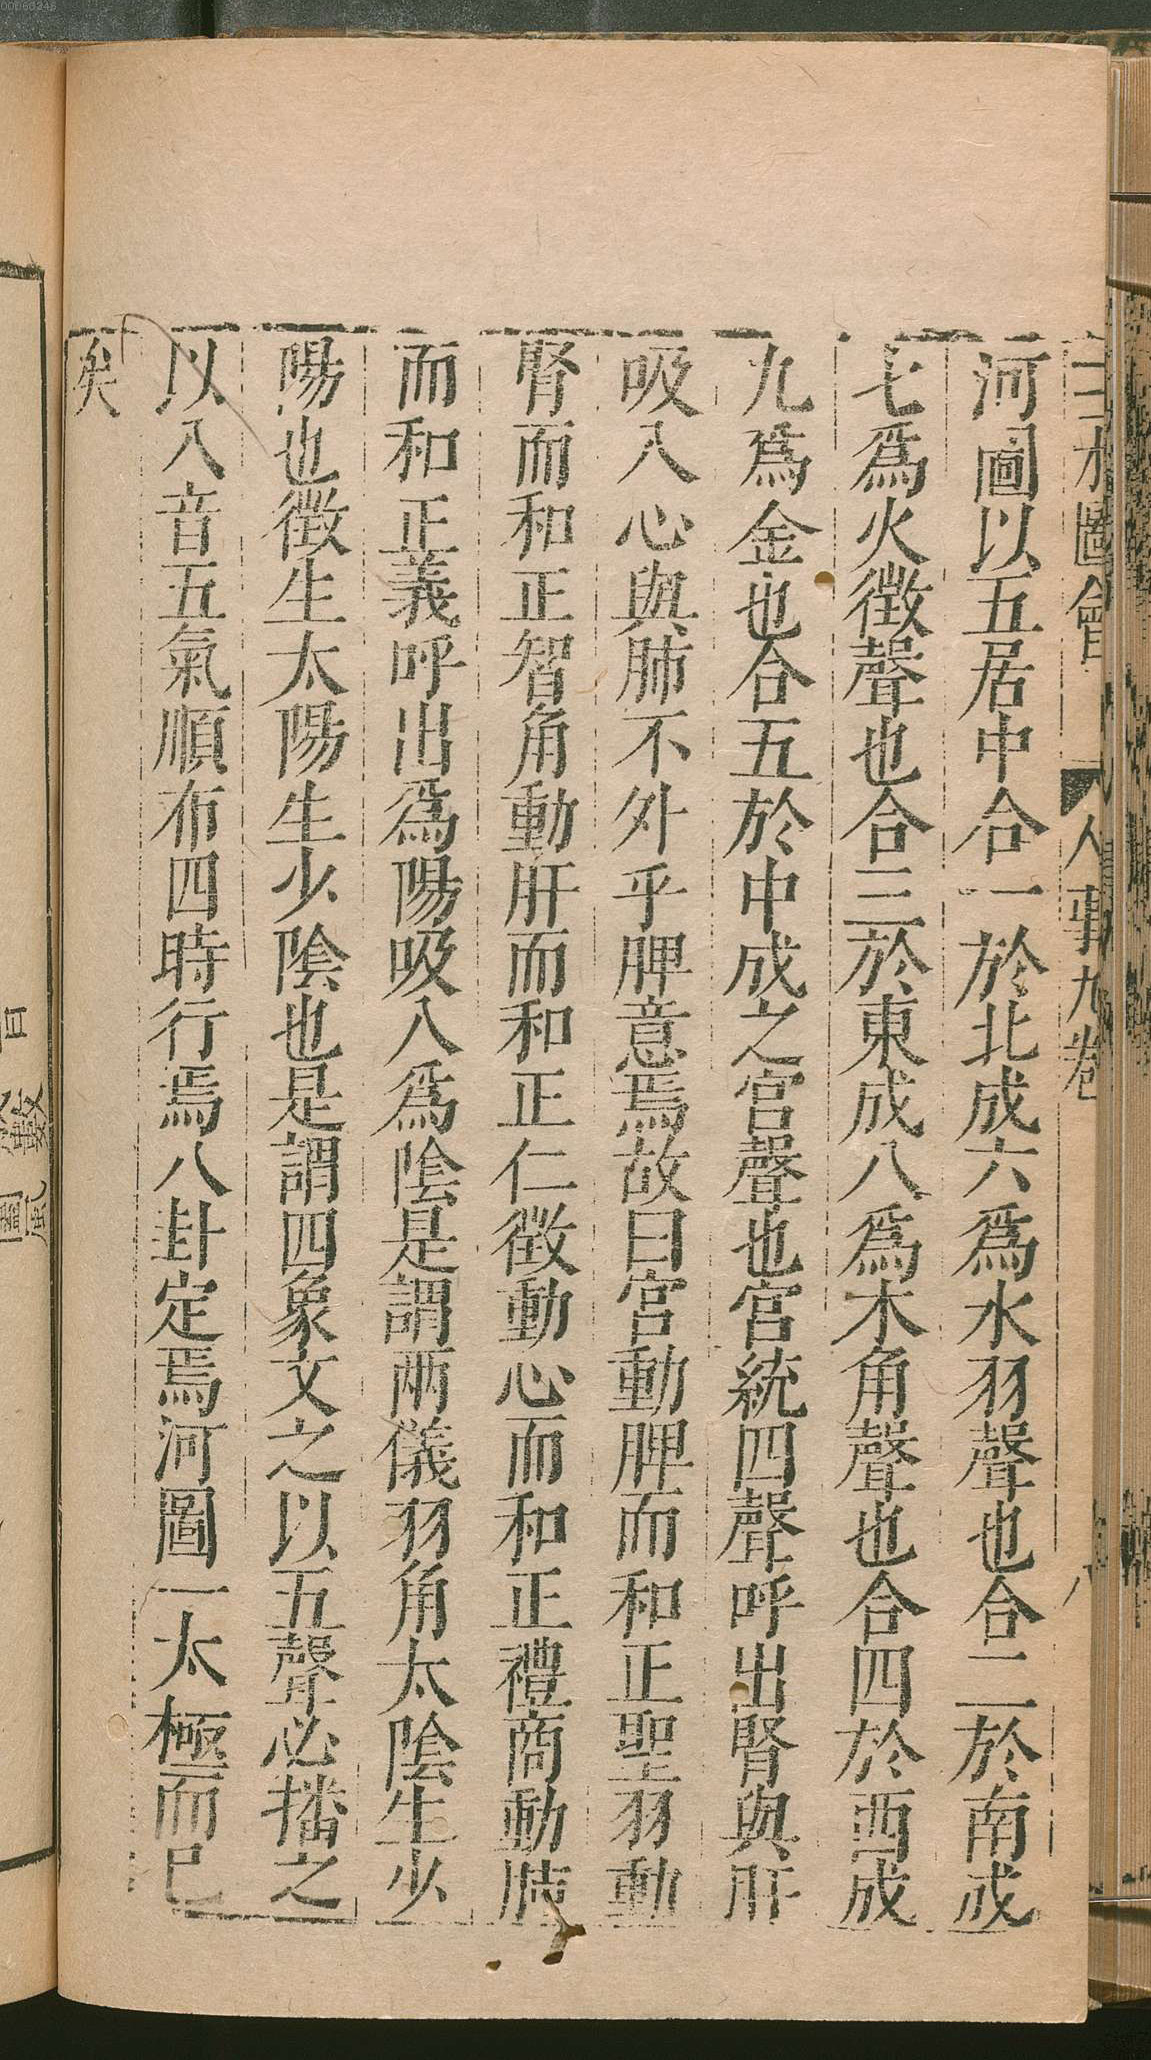 三才圖會
人事九卷
八
河圖以五居中合一於北成六爲水羽聲也合二於南成
七爲火徵聲也合三於東成八爲木角聲也合四於西成
九爲金也合五於中成之宮聲也宮統四聲呼出腎與肝
吸入心與肺不外乎脾意焉故曰宮動脾而和正聖羽動
腎而和正智角動肝而和正仁徵動心而和正禮商動肺
而和正義呼出爲陽吸入爲陰是謂兩儀羽角太陰生少
陽也徵生太陽生少陰也是謂四象文之以五聲必播之
以八音五氣順布四時行焉八卦定焉河圖一太極而已
矣